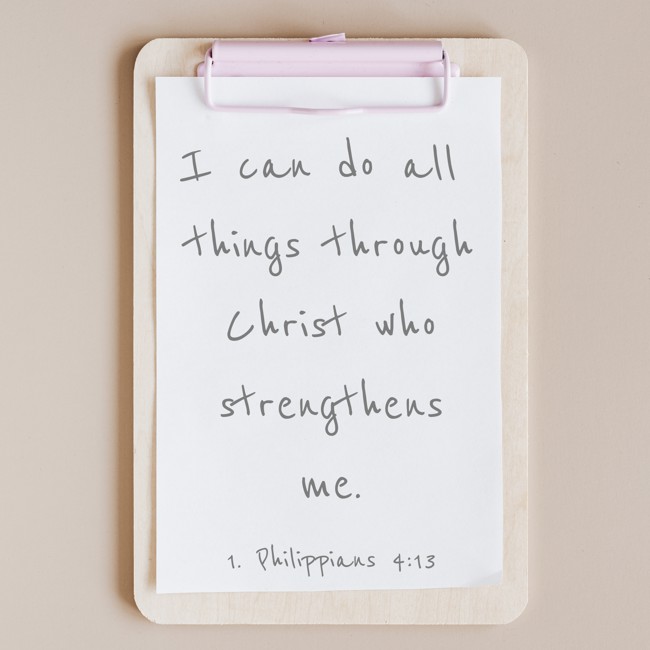 I can do all
things through
Christ who
strengthens
me.
1. Philippians 4:13